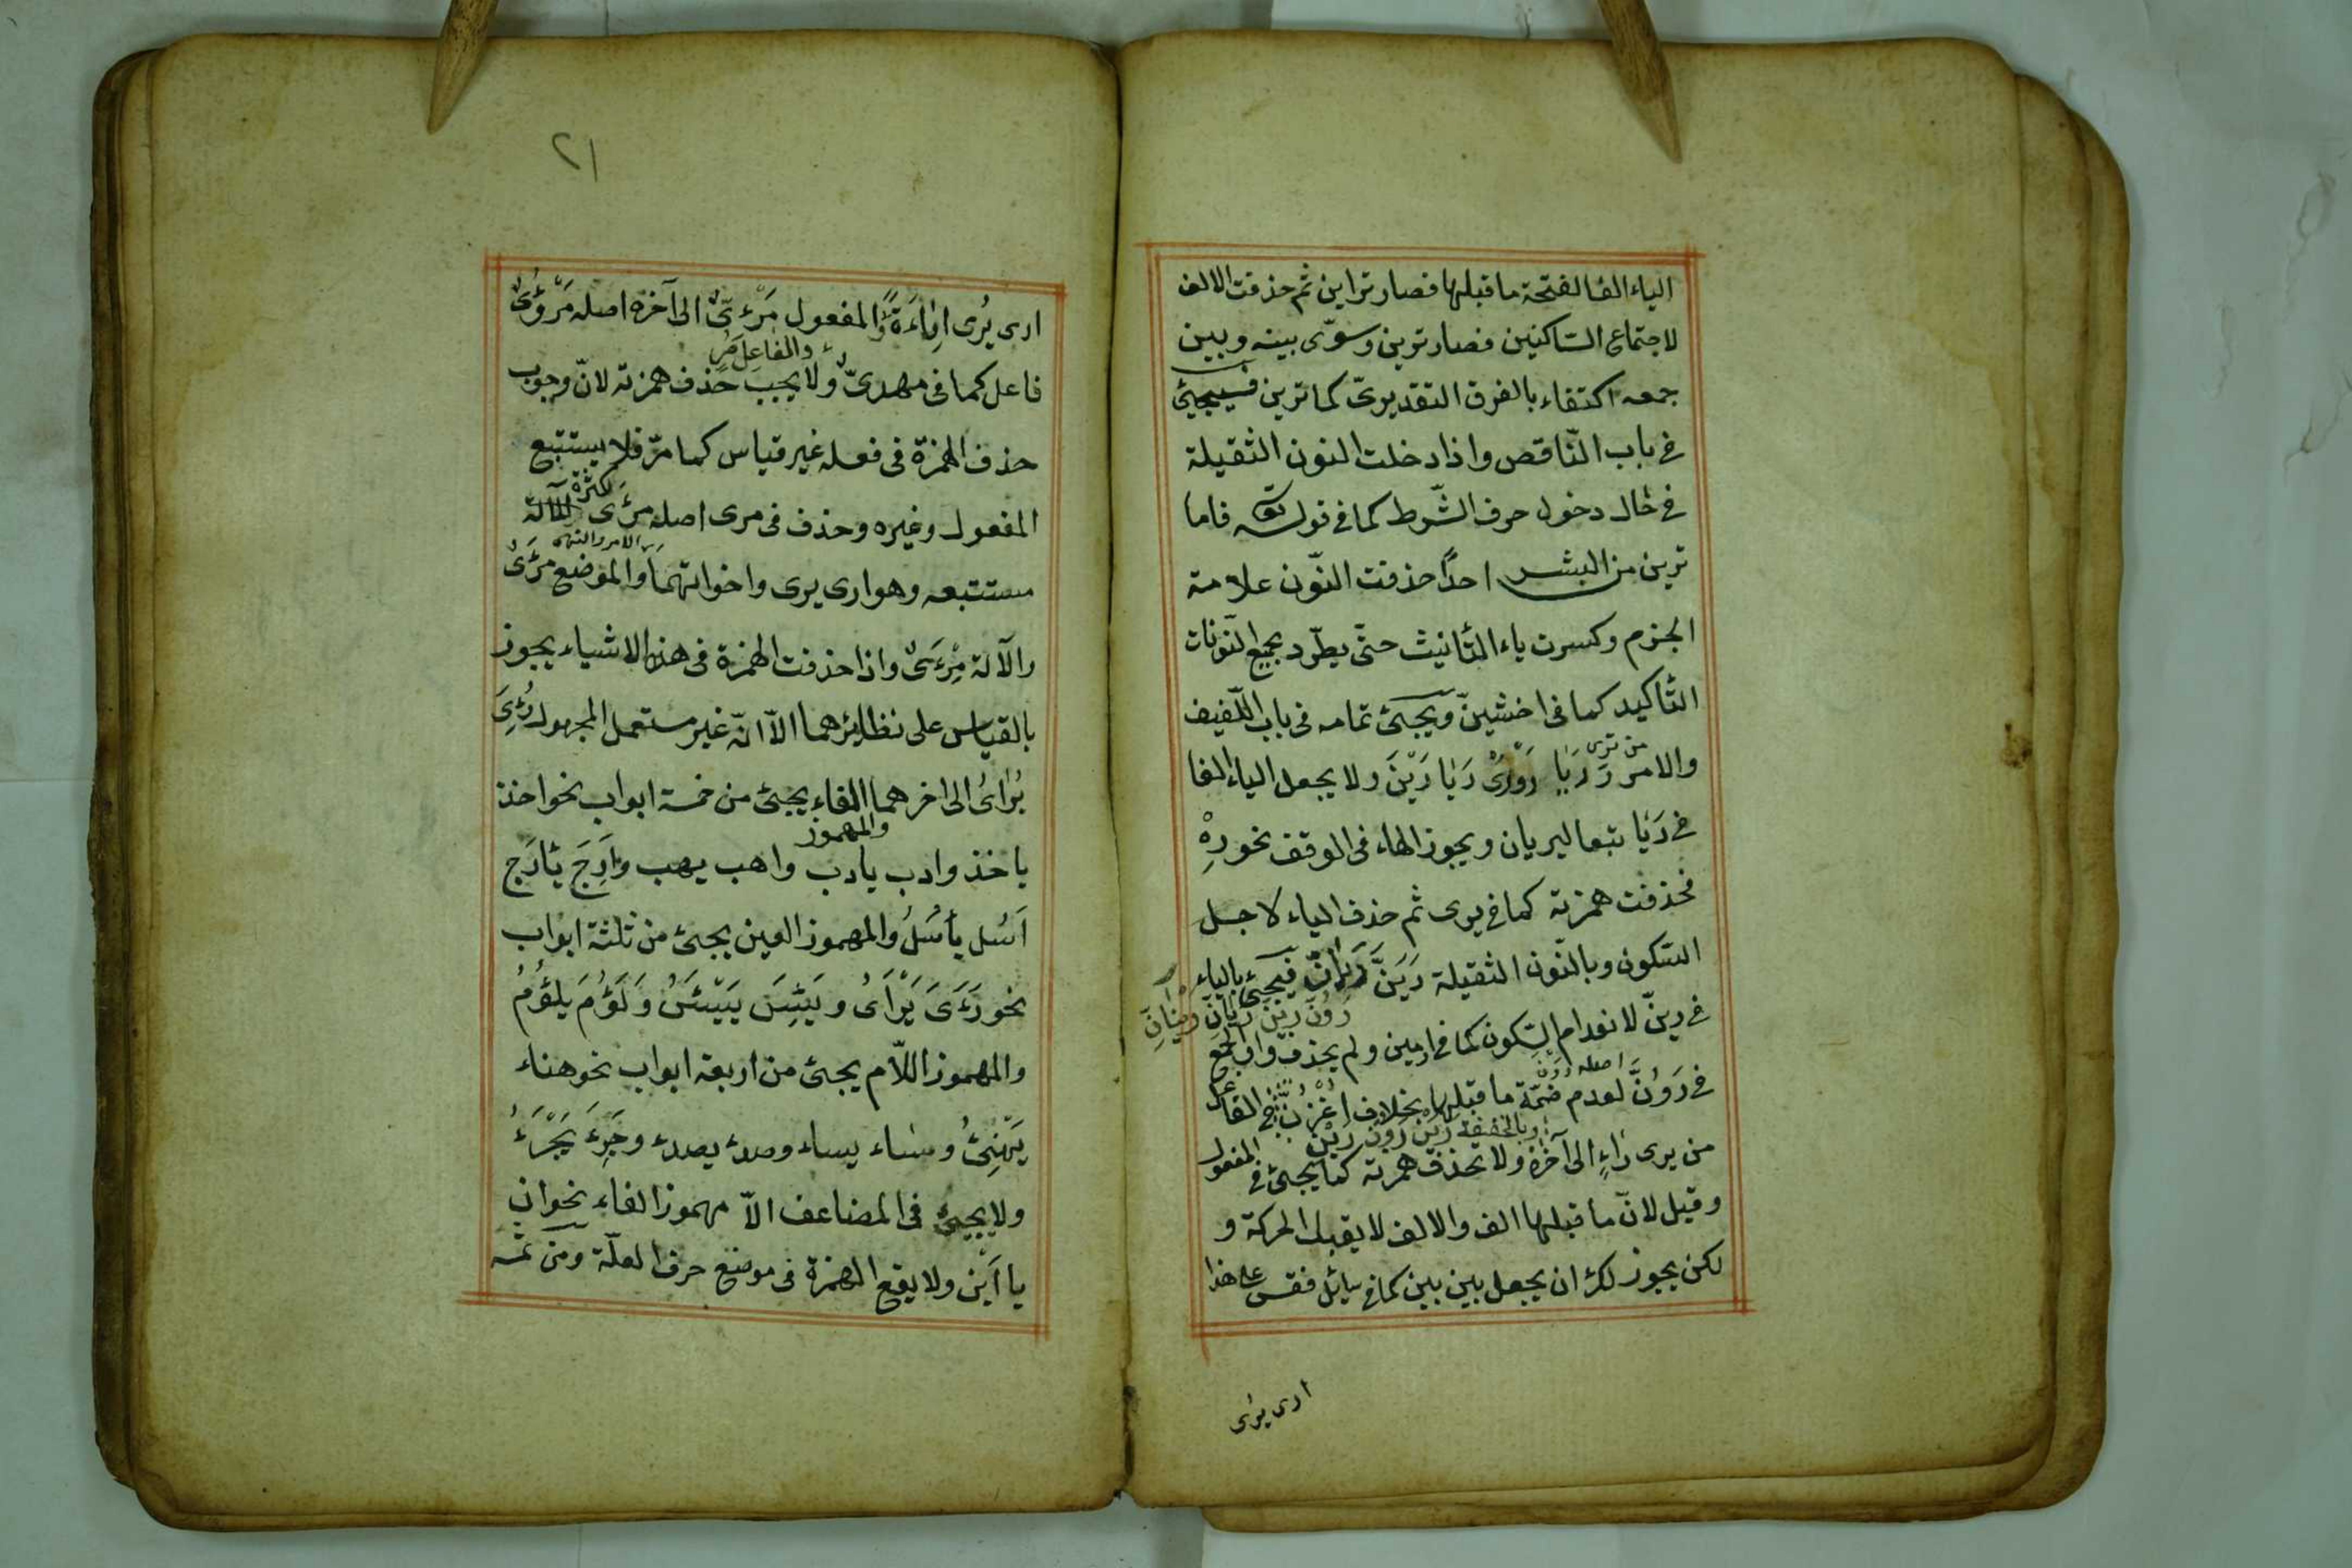 الياء الفا لفتحة ما قبلها فصار تراين ثم حذفت الالف
لاجتماع السّاكنين فصار ترين وسوّى بينه وبين
جمعه اكتفاء بالفرق التقديرىّ كما ترين فسيجيئ
فى باب النّاقص واذا دخلت النون الثقيلة
فى حال دخول حرف الشّرط كما فى قوله تعٓ فاما
ترين من البشر احدًا حذفت النّون علامة
الجزم وكسرت ياء التّأنيث حتّى يطّرد بجميع النّونات
التّأكيد كما فى اخشينّ ويجيئ تمامه فى باب اللّفيف
من ترى
والامر رَ رَيَا رَوْا رَىْ رَيَا رَيْنَ ولا يجعل الياء الفا
فى رَيَا تبعا ليريان ويجوز الهاء فى الوقف نحو رِهْ
فحذفت همزته كما فى يرى ثم حذف الياء لاجل
السّكون وبالنّون الثقيلة رَيَنَّ رَيَانّ فيجيئ بالياء
رَوُنَّ رَيِنَّ رَيَانِّ رَيْنَانِّ
فى رينّ لانعدام السّكون كما فى ارمين ولم يحذف واو الجمع
اصله رَوْنَ
فى رَوُنَّ لعدم ضمّة ما قبلها بخلاف اُغْزُنَّ الفاعل
وبالخفيفة رَيَنْ رَوُنْ رَيِنْ
من يرى رَاءٍ الى آخره ولا تحذف همزته كما يجيئ فى المفعول
وقيل لانّ ما قبلها الف والالف لا يقبل الحركة و
لكن يجوز لك ان يجعل بين بين كما فى سائل فقس على هذا
ارى يرى
٢١
ارى يُرى اِرَاءَةً والمفعول مَرْءِىٌّ الى آخره اصله مَرْؤُىٌ
والفاعل مُرٍ
فاعل كما فى مهدىٌّ ولا يجب حذف همزته لانّ وجوب
حذف الهمزة فى فعله غير قياس كما مرّ فلا يستتبع
المفعول وغيره وحذف فى مرى اصله مرْءَى لكثرة
مستتبعه وهو ارى يرى واخواتهما والموضع مَرْءَىً
الامر والنهى
والآلة مِرْءَىً واذا حذفت الهمزة فى هذه الاشياء يجوز
بالقياس على نظائرهما الّا انّه غير مستعمل المجهول رُئِىَ
يُرَاىُ الى اخرهما الفاء يجيئ من خمسة ابواب نحو اخذ
والمهموز
ياخذ وادب يادب واهب يهب واَرِجَ يَأرَج
اَسُل يأسُلُ والمهموز العين يجيئ من ثلثة ابواب
نحو رَءَىَ يَرْاَىُ ويَئِسَ يَيْئَسُ وَلَؤُمَ يلؤُمُ
والمهموز اللّام يجيئ من اربعة ابواب نحو هناء
يَهْنِئُ وساء يساء وصدء يصدء وجَرِءَ يَجْرَءُ
ولا يجيئ فى المضاعف الّا مهموز الفاء نحو انّ
يااَيْن ولا يقع الهمزة فى موضع حرف العلّة ومن ثمه